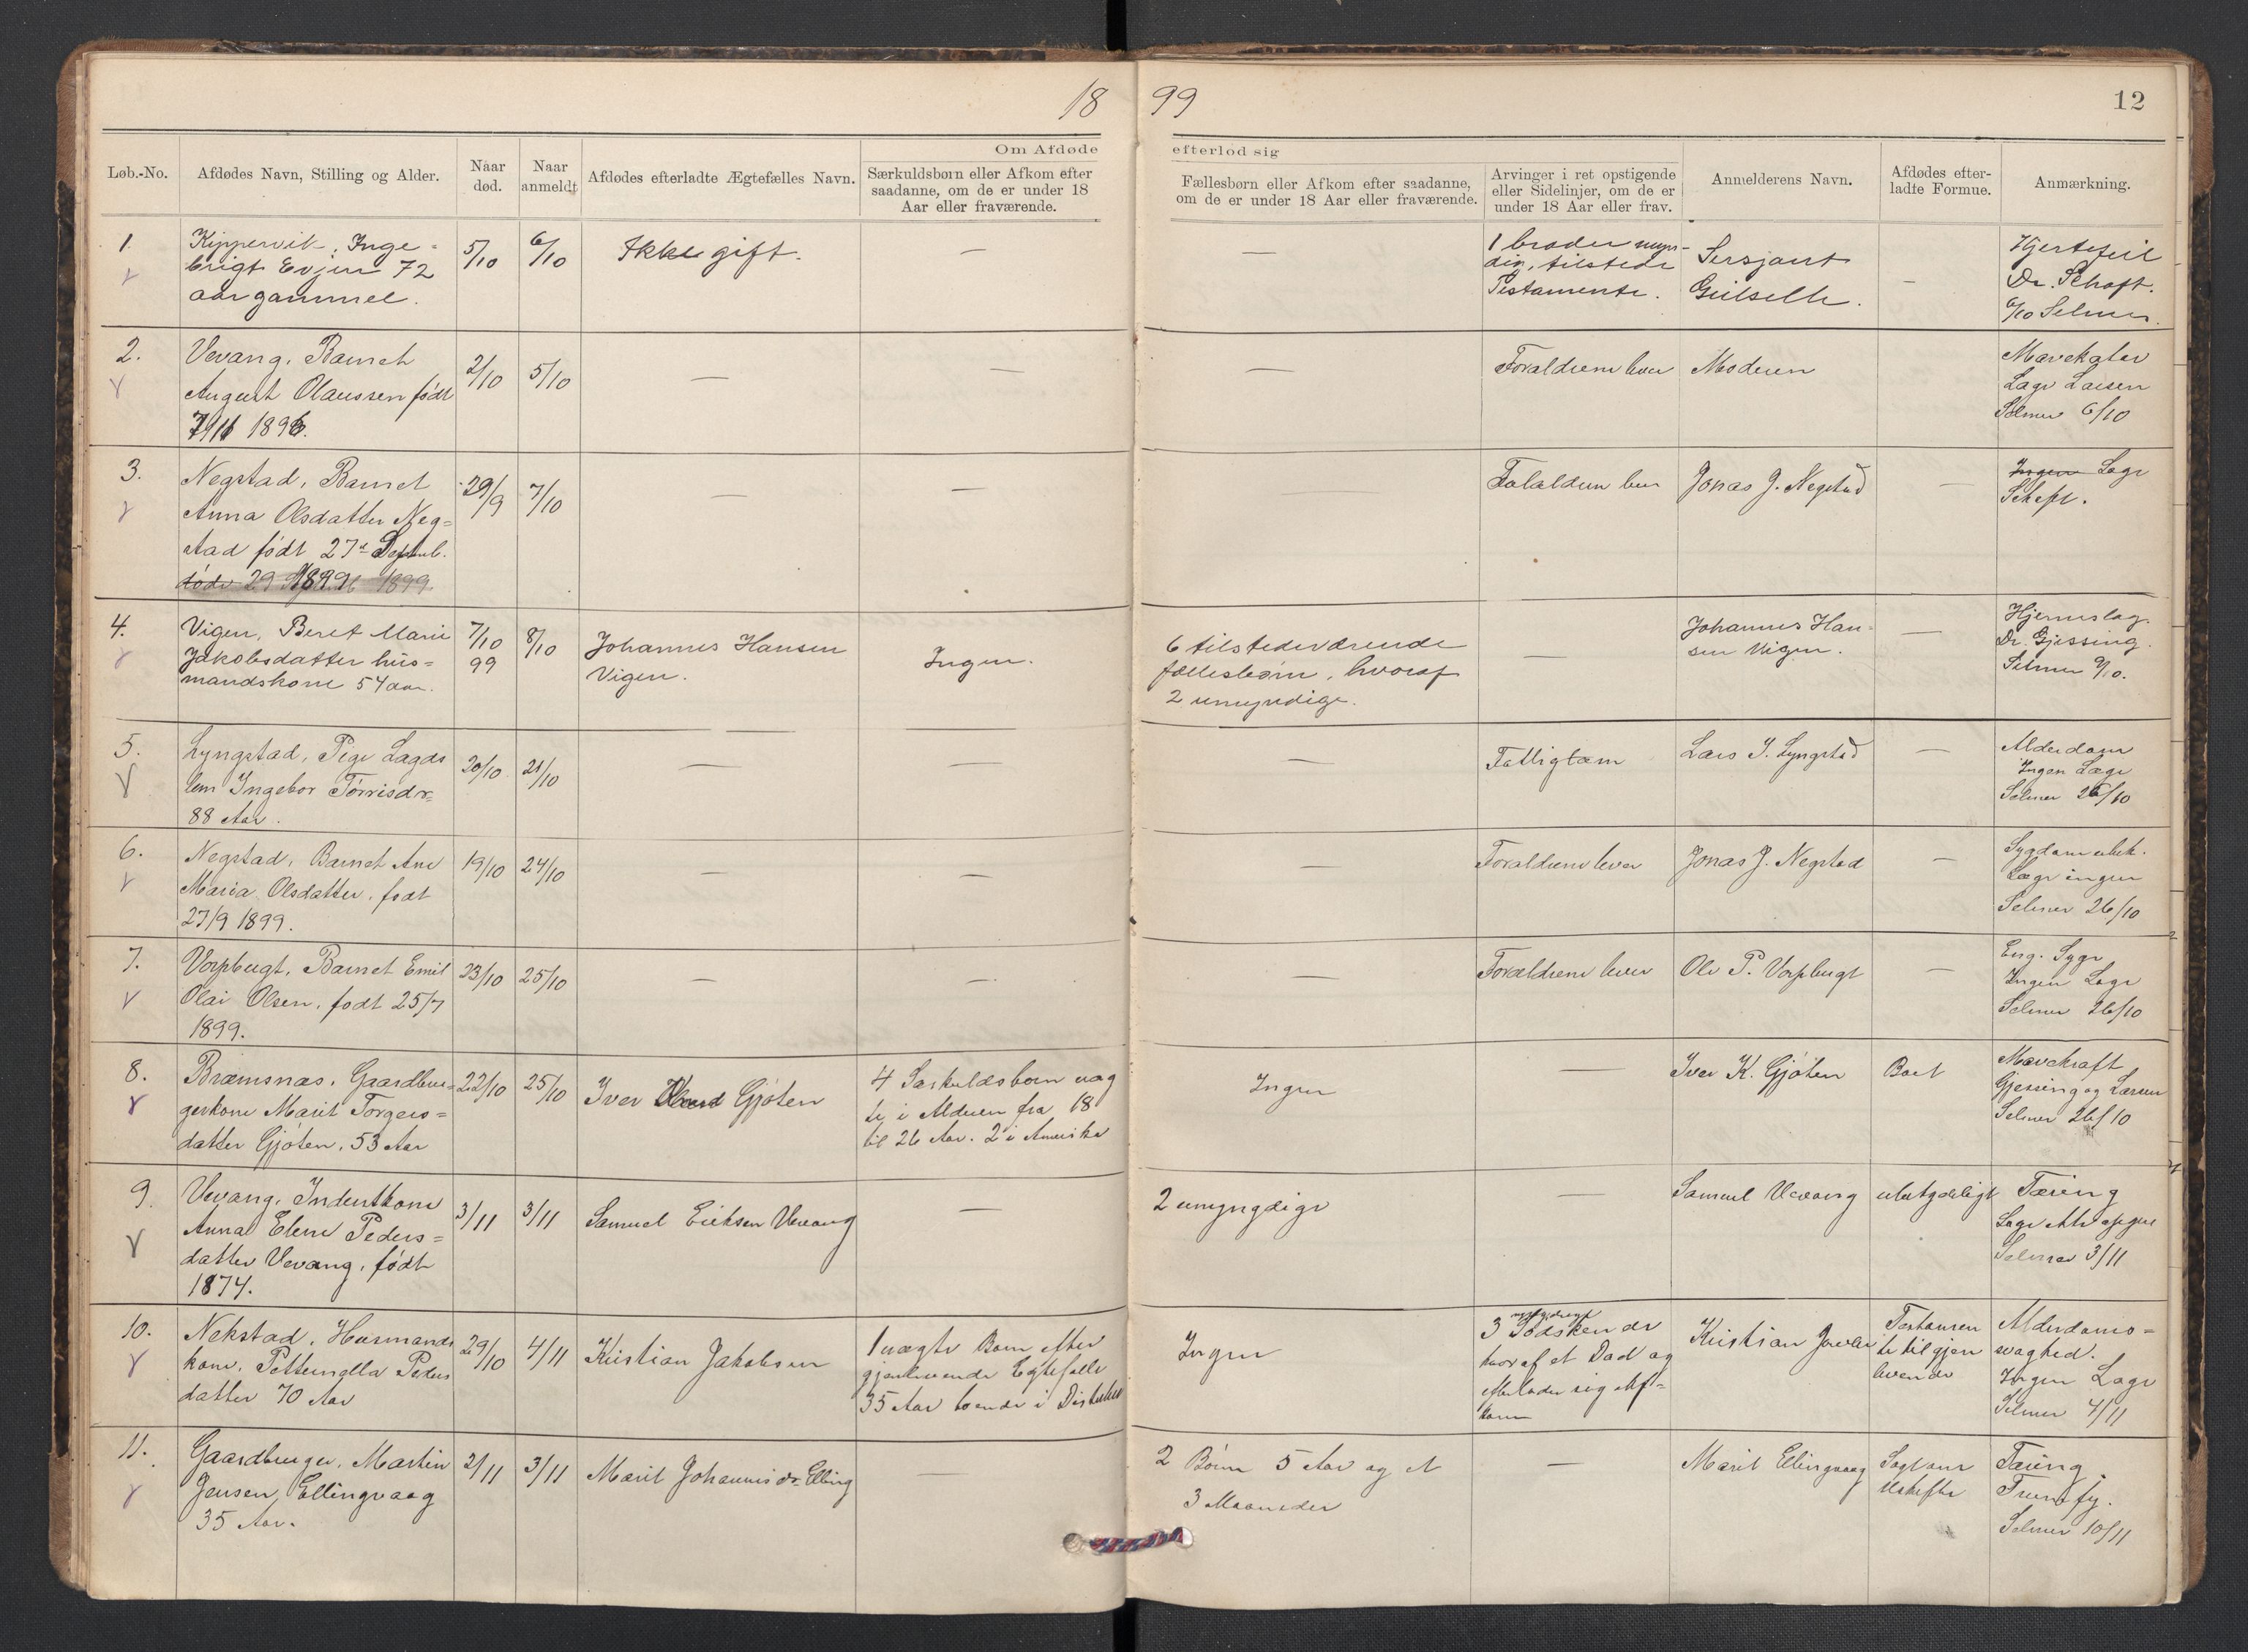 18 99
12
Om Afdøde
efterlod sig
Løb.-No.
Afdødes Navn, Stilling og Alder.
Naar død.
Naar anmeldt
Afdødes efterladte Ægtefælles Navn.
Særkuldsbörn eller Afkom efter
saadanne, om de er under 18
Aar eller fraværende.
Fællesbørn eller Afkom efter saadanne,
om de er under 18 Aar eller fraværende.
Arvinger i ret opstigende
eller Sidelinjer, om de er
under 18 Aar eller frav.
Anmelderens Navn.
Afdødes efter-
ladte Formue.
Anmærkning.
1.
Kippervik, Inge-
brigt Evjen 72
aar gammel.
5/10
6/10
Ikke gift.
—
—
1 broder myn-
dig, tilstede
Testamente.
Sersjant
—
Hjertefeil
Dr. Schoft.
6/10 Selmer.
2.
Vevang, Barnet
August Olaussen født
1896.
2/10
5/10
—
—
—
Foraldrene lever
Moderen
Mavekatar
Læge Larsen
Selmer 6/10
3.
Negstad, Barnet
Anna Olsdatter Neg=
stad født 27de Septemb.
døde 29 1899
29/9
7/10
—
—
Jonas J. Negstad
—
Ingen Læge
4.
Vigen, Beret Marie
Jakobsdatter hus=
mandskone 54 aar.
7/10
99
8/10
Johannes Hansen
Vigen.
Ingen.
6 tilstedeværende
fællesbørn, hvoraf
2 umyndige.
—
Johannes Han-
sen Vigen.
—
Hjerneslag.
Dr. Gjessing.
Selmer 9/10.
5.
Lyngstad, Pige Lægds
lem Ingebor Torrisdr=
88 Aar.
20/10
21/10
—
—
—
Fattiglem
Lars I. Lyngstad
—
Alderdom
Ingen Læge
Selmer 26/10
6.
Negstad, Barnet Ane
Maria Olsdatter, født
27/9 1899.
19/10
24/10
—
—
—
Foraldrene lever
Jonas J. Negstad
—
Sygdom ubek.
Læge ingen
Selmer 26/10
7.
Vorpbugt, Barnet Emil
Olai Olsen, født 25/7
1899.
23/10
25/10
—
—
—
Foraldrene lever
Ole P. Vorpbugt
—
Eng. Syge
Ingen Læge
Selmer 26/10
8.
Bræmsnæs, Gaardbru=
gerkone Marit Torgers=
datter Gjøten, 53 Aar
22/10
25/10
Iver Gjøten
4 Særkuldsbørn
i Alderen fra 18
til 26 Aar. 2 i Amerika
Ingen
—
Iver K. Gjøten
Boet
Mavekræft
Gjessing og Larsen
Selmer 26/10
9.
Vevang, Inderstkone
Anna Elene Peders=
datter Vevang, født
1874.
3/11
3/11
Samuel Eriksen Vevang
—
2 umyngdige
—
Samuel Vevang
ubetydeligt
Tæring
Selmer 3/11
10.
Nekstad, Husmands
kone, Petternella Peders
datter 70 Aar
29/10
4/11
Kristian Jakobsen
1 uægte Barn efter
gjenlevende Egtefælle
35 Aar boende i Distriktet
Ingen
3 Sødskende
hvoraf et Død og
efterlader sig Af=
kom
Kristian
Testamen
te til gjen
levende
Alderdoms=
svaghed.
Ingen Læge
Selmer 4/11
11.
Gaardbruger, Martin
Jensen, Ellingvaag
35 Aar.
2/11
3/11
Marit Johannisdr= Elling
—
2 Børn 5 Aar og et
3 Maaneder
—
Marit Ellingvaag
Søgt om
Uskifte
Tæring
Selmer 10/11